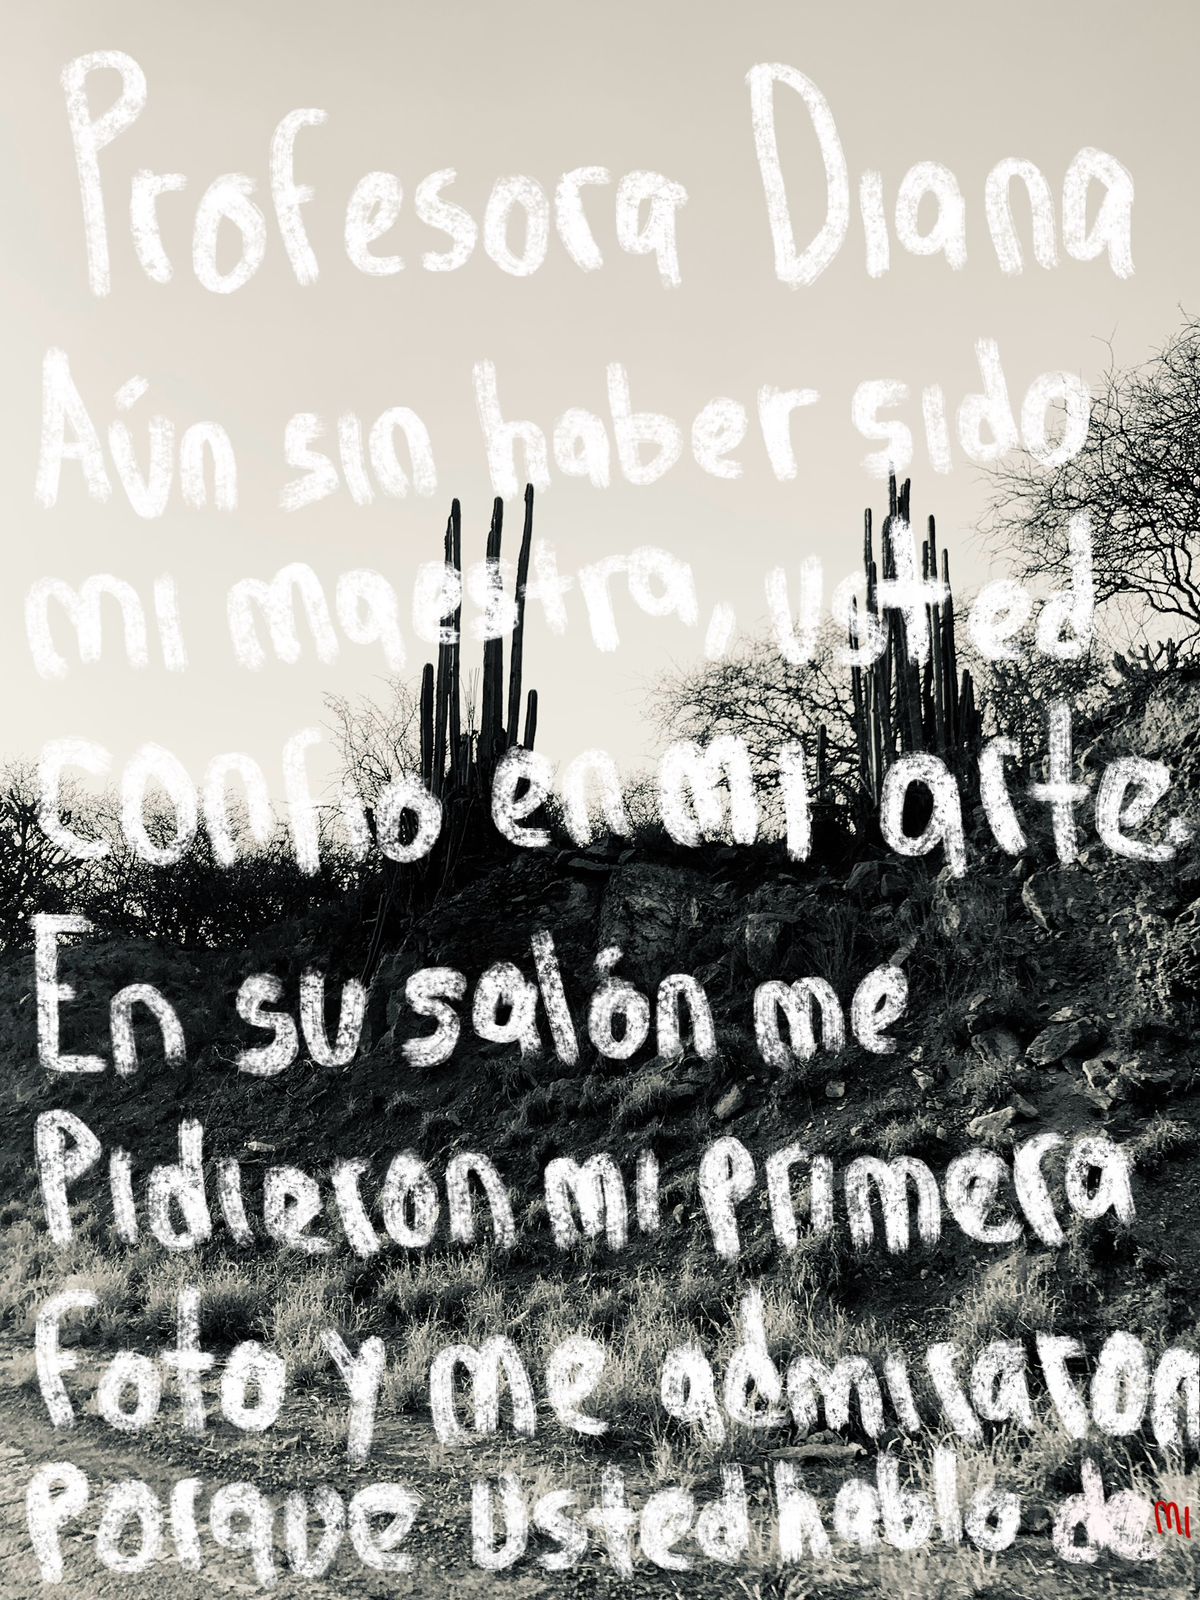 Profesora Diana
Aún sin haber sido
mi maestra, usted
confio en mi arte.
En su salón mé
Pidieron mi primera
foto y me admiraron
Porque usted hablo de mi